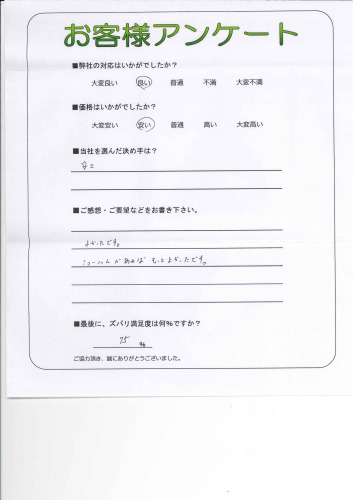 お客様アンケート
■弊社の対応はいかがでしたか?
大変良い 良い 普通 不満 大変不満
■価格はいかがでしたか?
大変安い 安い 普通 高い 大変高い
■当社を選んだ決め手は?
■ご感想・ご要望などをお書き下さい。
よかったです。
ショールームがあれば もっとよかったです。
■最後に、ズバリ満足度は何%ですか?
75 %
ご協力頂き、誠にありがとうございました。